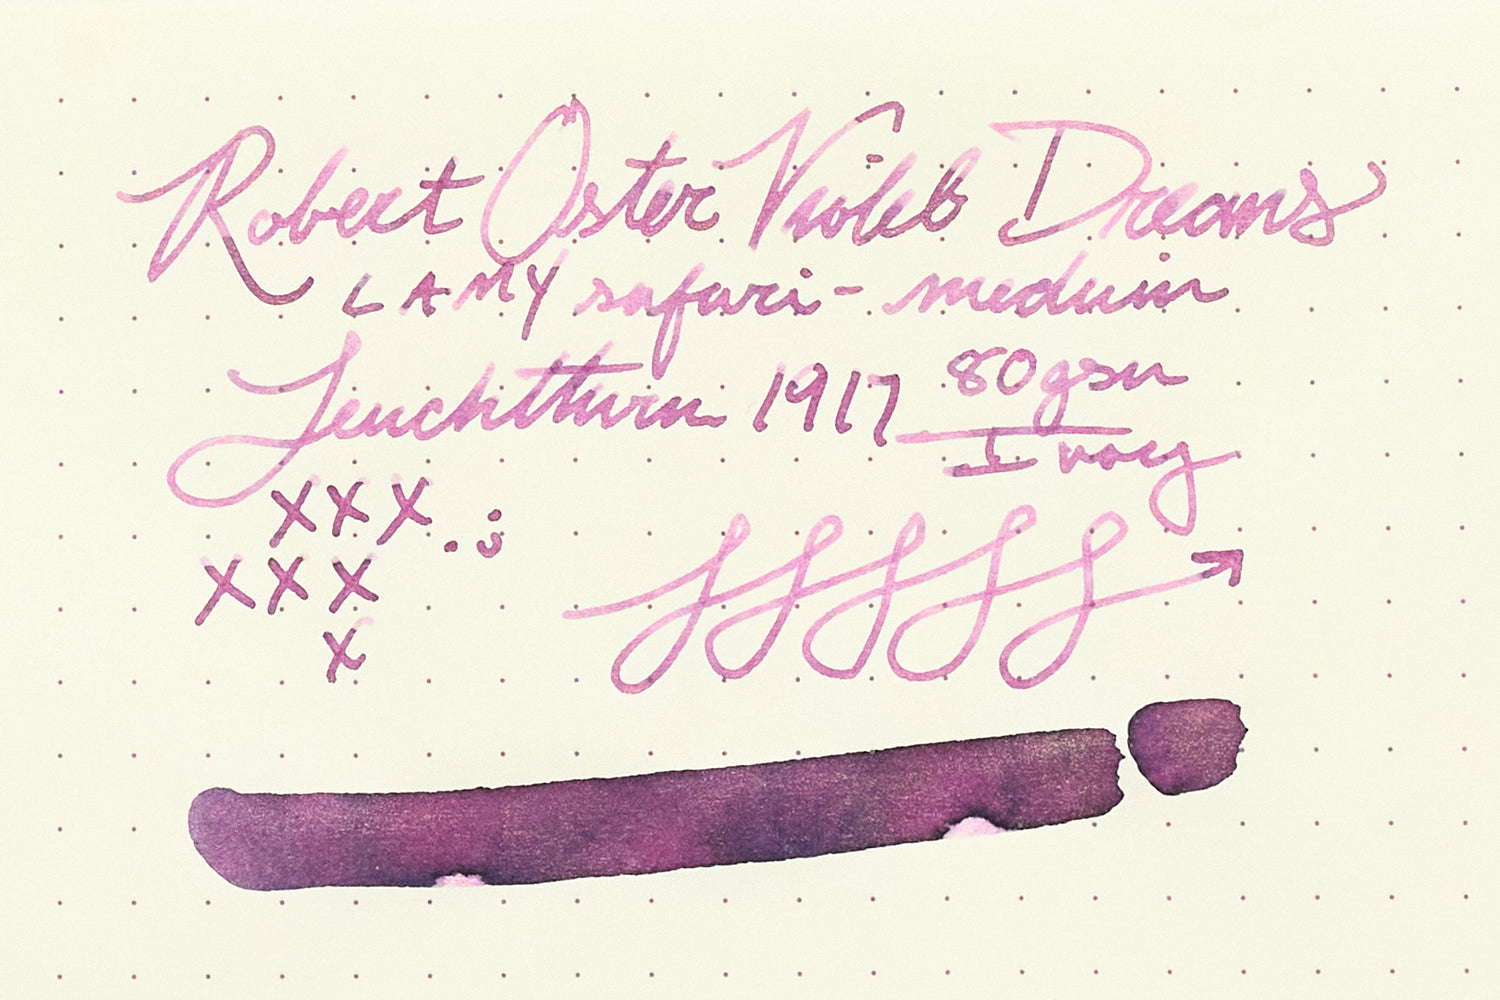 Robert Oster Violet Dreams
LAMY safari - medium
Leuchtturm 1917 80gsm
Ivory
XXX
XXX
X